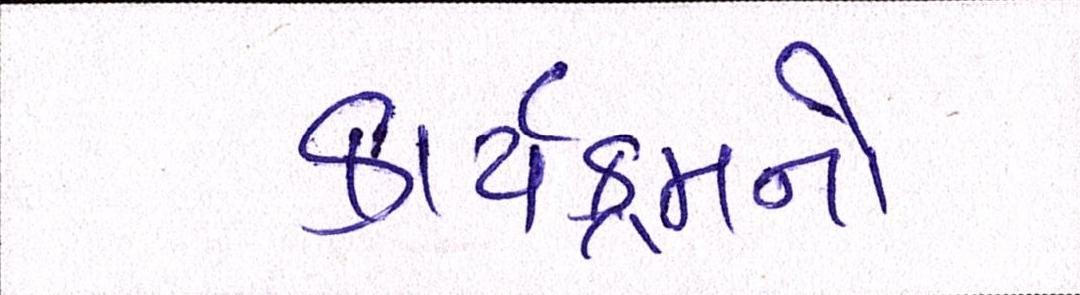 કાર્યક્રમનો